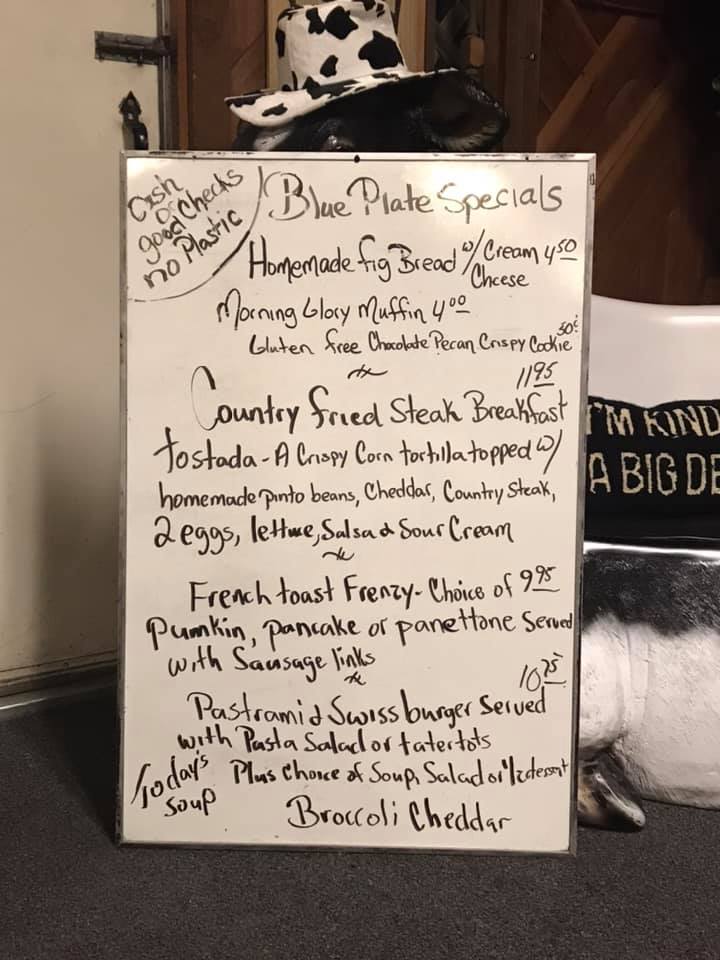 Cash
or
good Checks
no Plastic
Blue Plate Specials
Homemade fig Bread w/ Cream 4 50
Cheese
Morning Glory Muffin 4 00
Gluten free Chocolate Pecan Crispy Cookie 50¢
11 95
Country Fried Steak Breakfast
tostada - A Crispy Corn tortilla topped w/
homemade pinto beans, Cheddar, Country Steak,
2 eggs, lettuce, Salsa & Sour Cream
French toast Frenzy - Choice of 9 95
Pumkin, pancake or panettone Served
with Sausage links
10 75
Pastrami & Swiss burger Served
with Pasta Salad or tatertots
Plus Choice of Soup, Salad or 1/2 dessert
Today's
Soup
Broccoli Cheddar
I'M KIND
A BIG DE